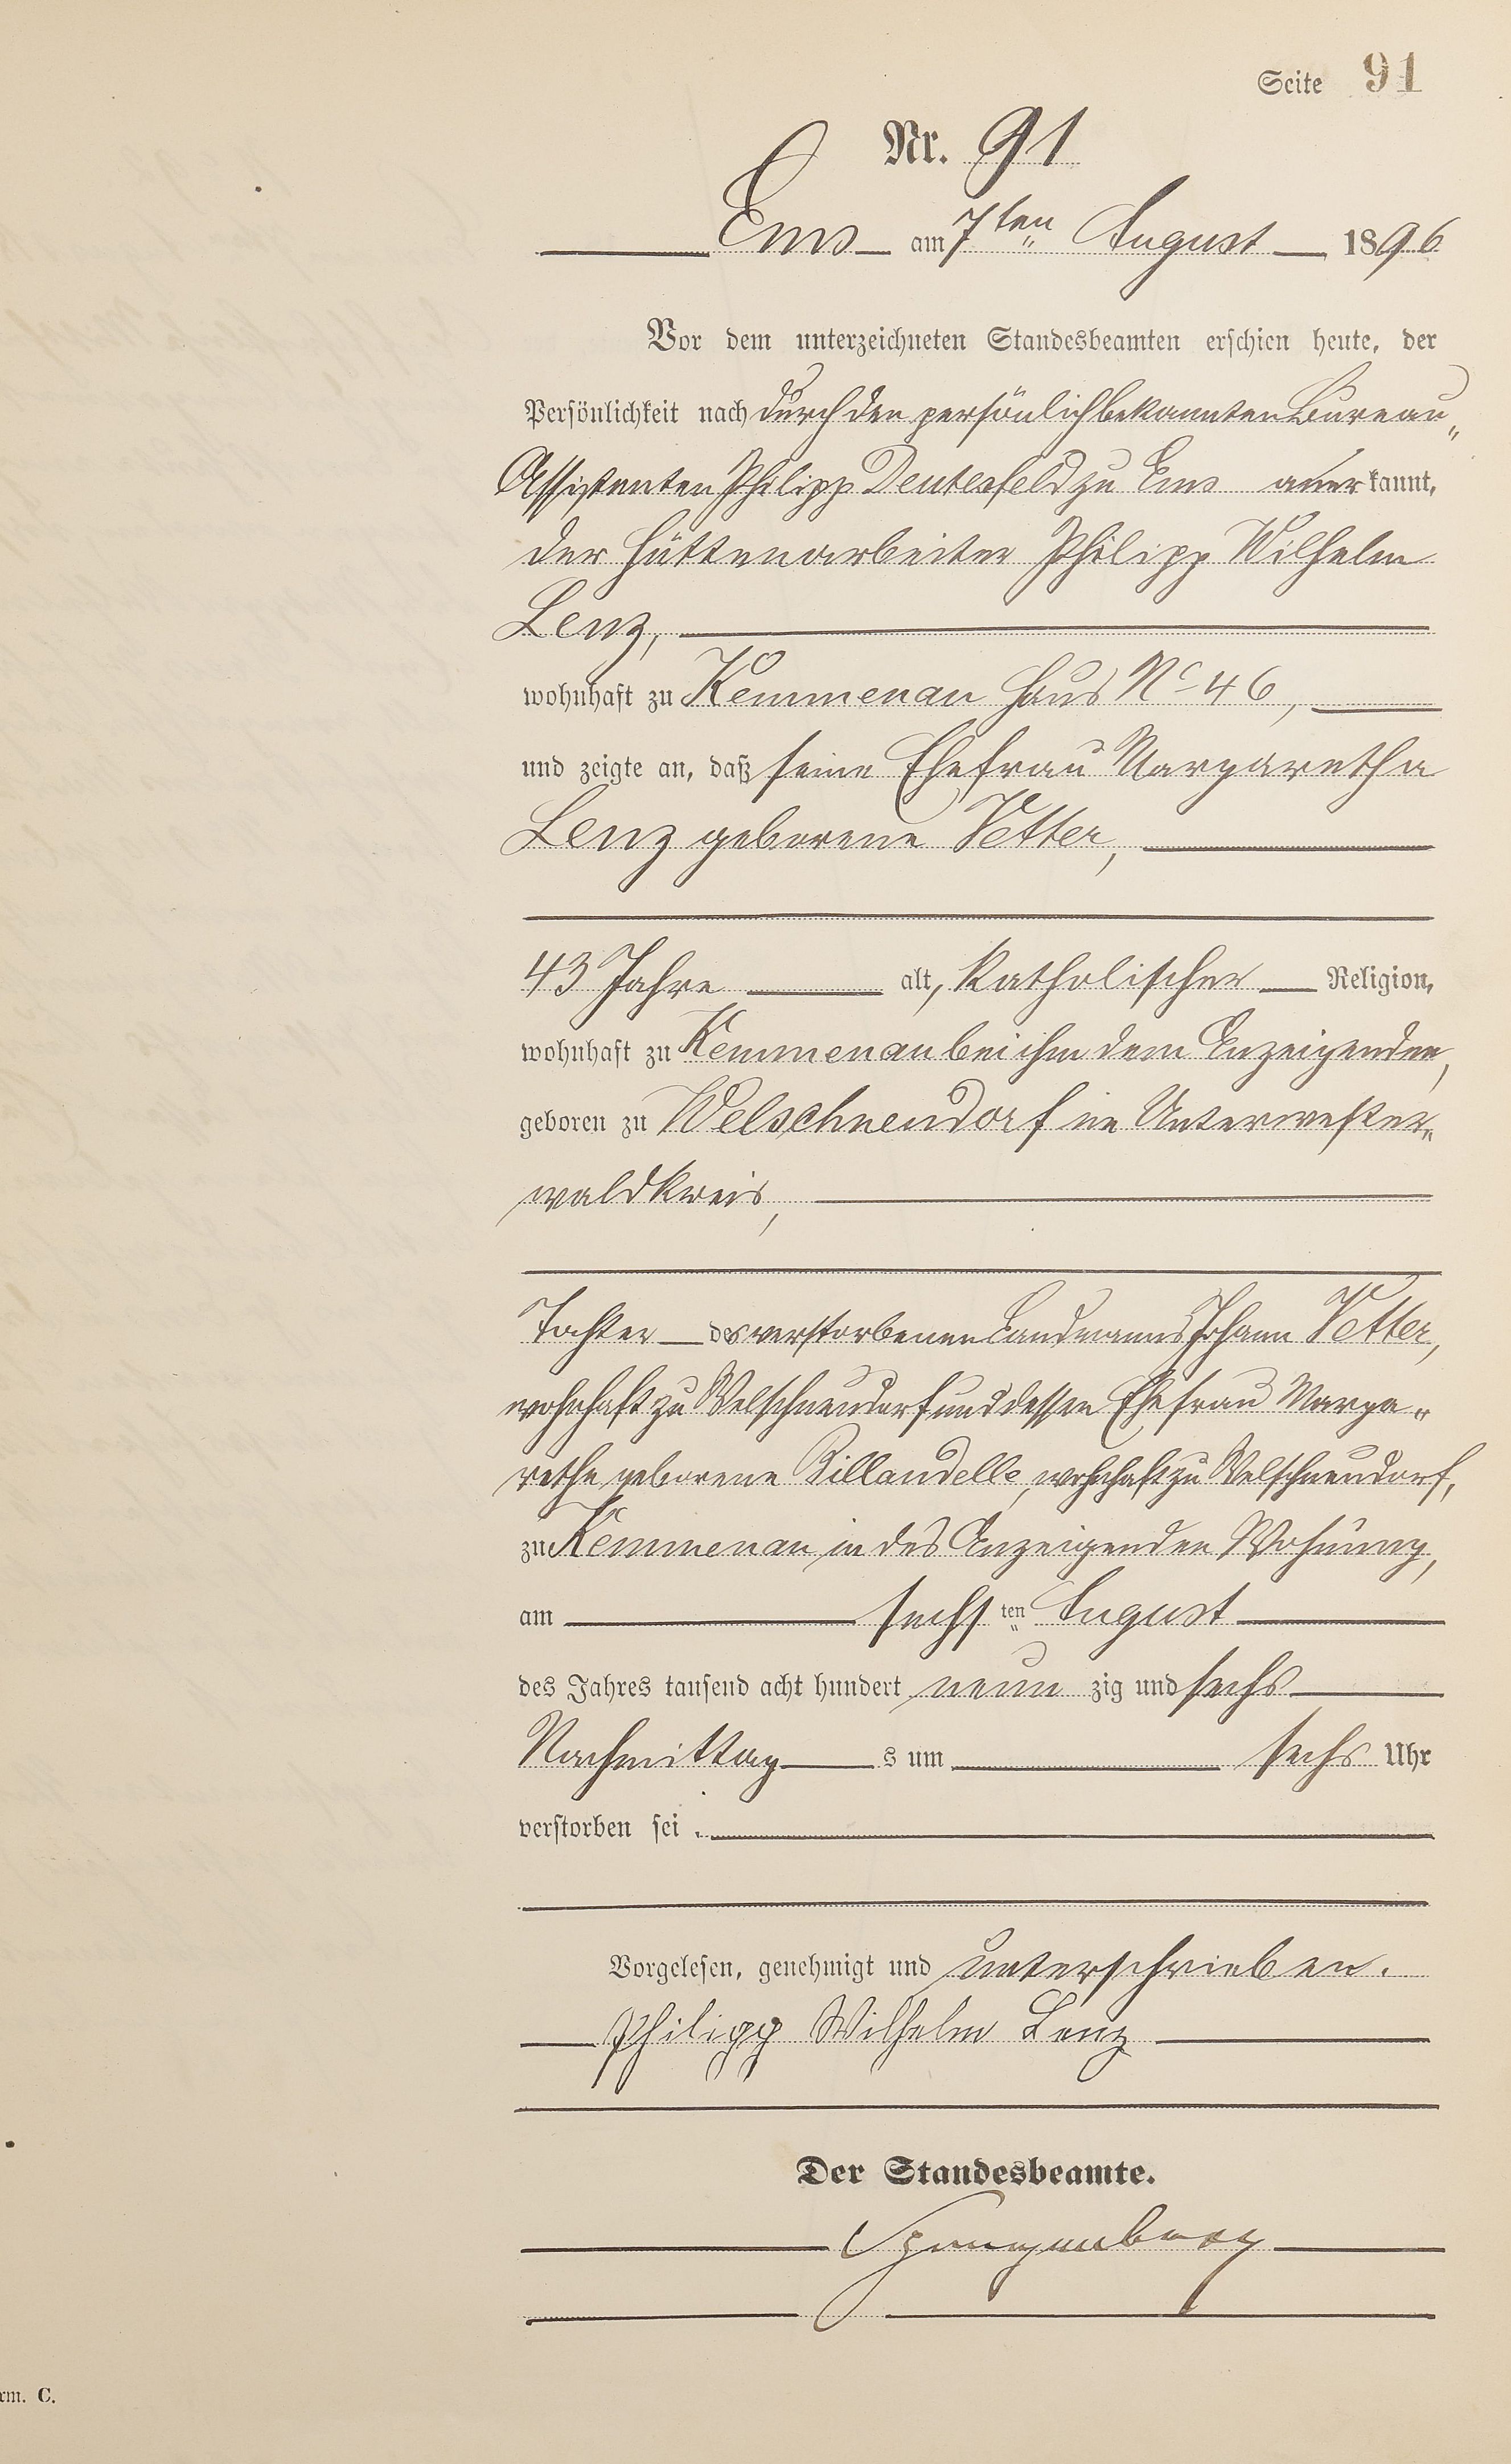 Seite 91
Nr. 91
Ems am 7ten August 1896
Vor dem unterzeichneten Standesbeamten erschien heute, der
Persönlichkeit nach durch den persönlich bekannten Bureau„
Assistenten Philipp Deutesfeld zu Ems anerkannt,
der Hüttenarbeiter Philipp Wilhelm
Lenz,
wohnhaft zu Kemmenau Haus No 46,
und zeigte an, daß seine Ehefrau Margaretha
Lenz geborene Vetter,
43 Jahre alt, katholischer Religion,
wohnhaft zu Kemmenau bei ihm dem Anzeigenden,
geboren zu Welschneudorf im Unterwester„
waldkreis,
Tochter des verstorbenen Landmanns Johann Vetter,
wohnhaft zu Welschneudorf und dessen Ehefrau Marga„
rethe geborene Billaudelle, wohnhaft zu Welschneudorf,
zu Kemmenau in des Anzeigenden Wohnung,
am sechsten August
des Jahres tausend acht hundert neunzig und sechs
Nachmittags um sechs Uhr
verstorben sei.
Vorgelesen, genehmigt und unterschrieben.
Philipp Wilhelm Lenz
Der Standesbeamte.
Spangenberg
rm. C.